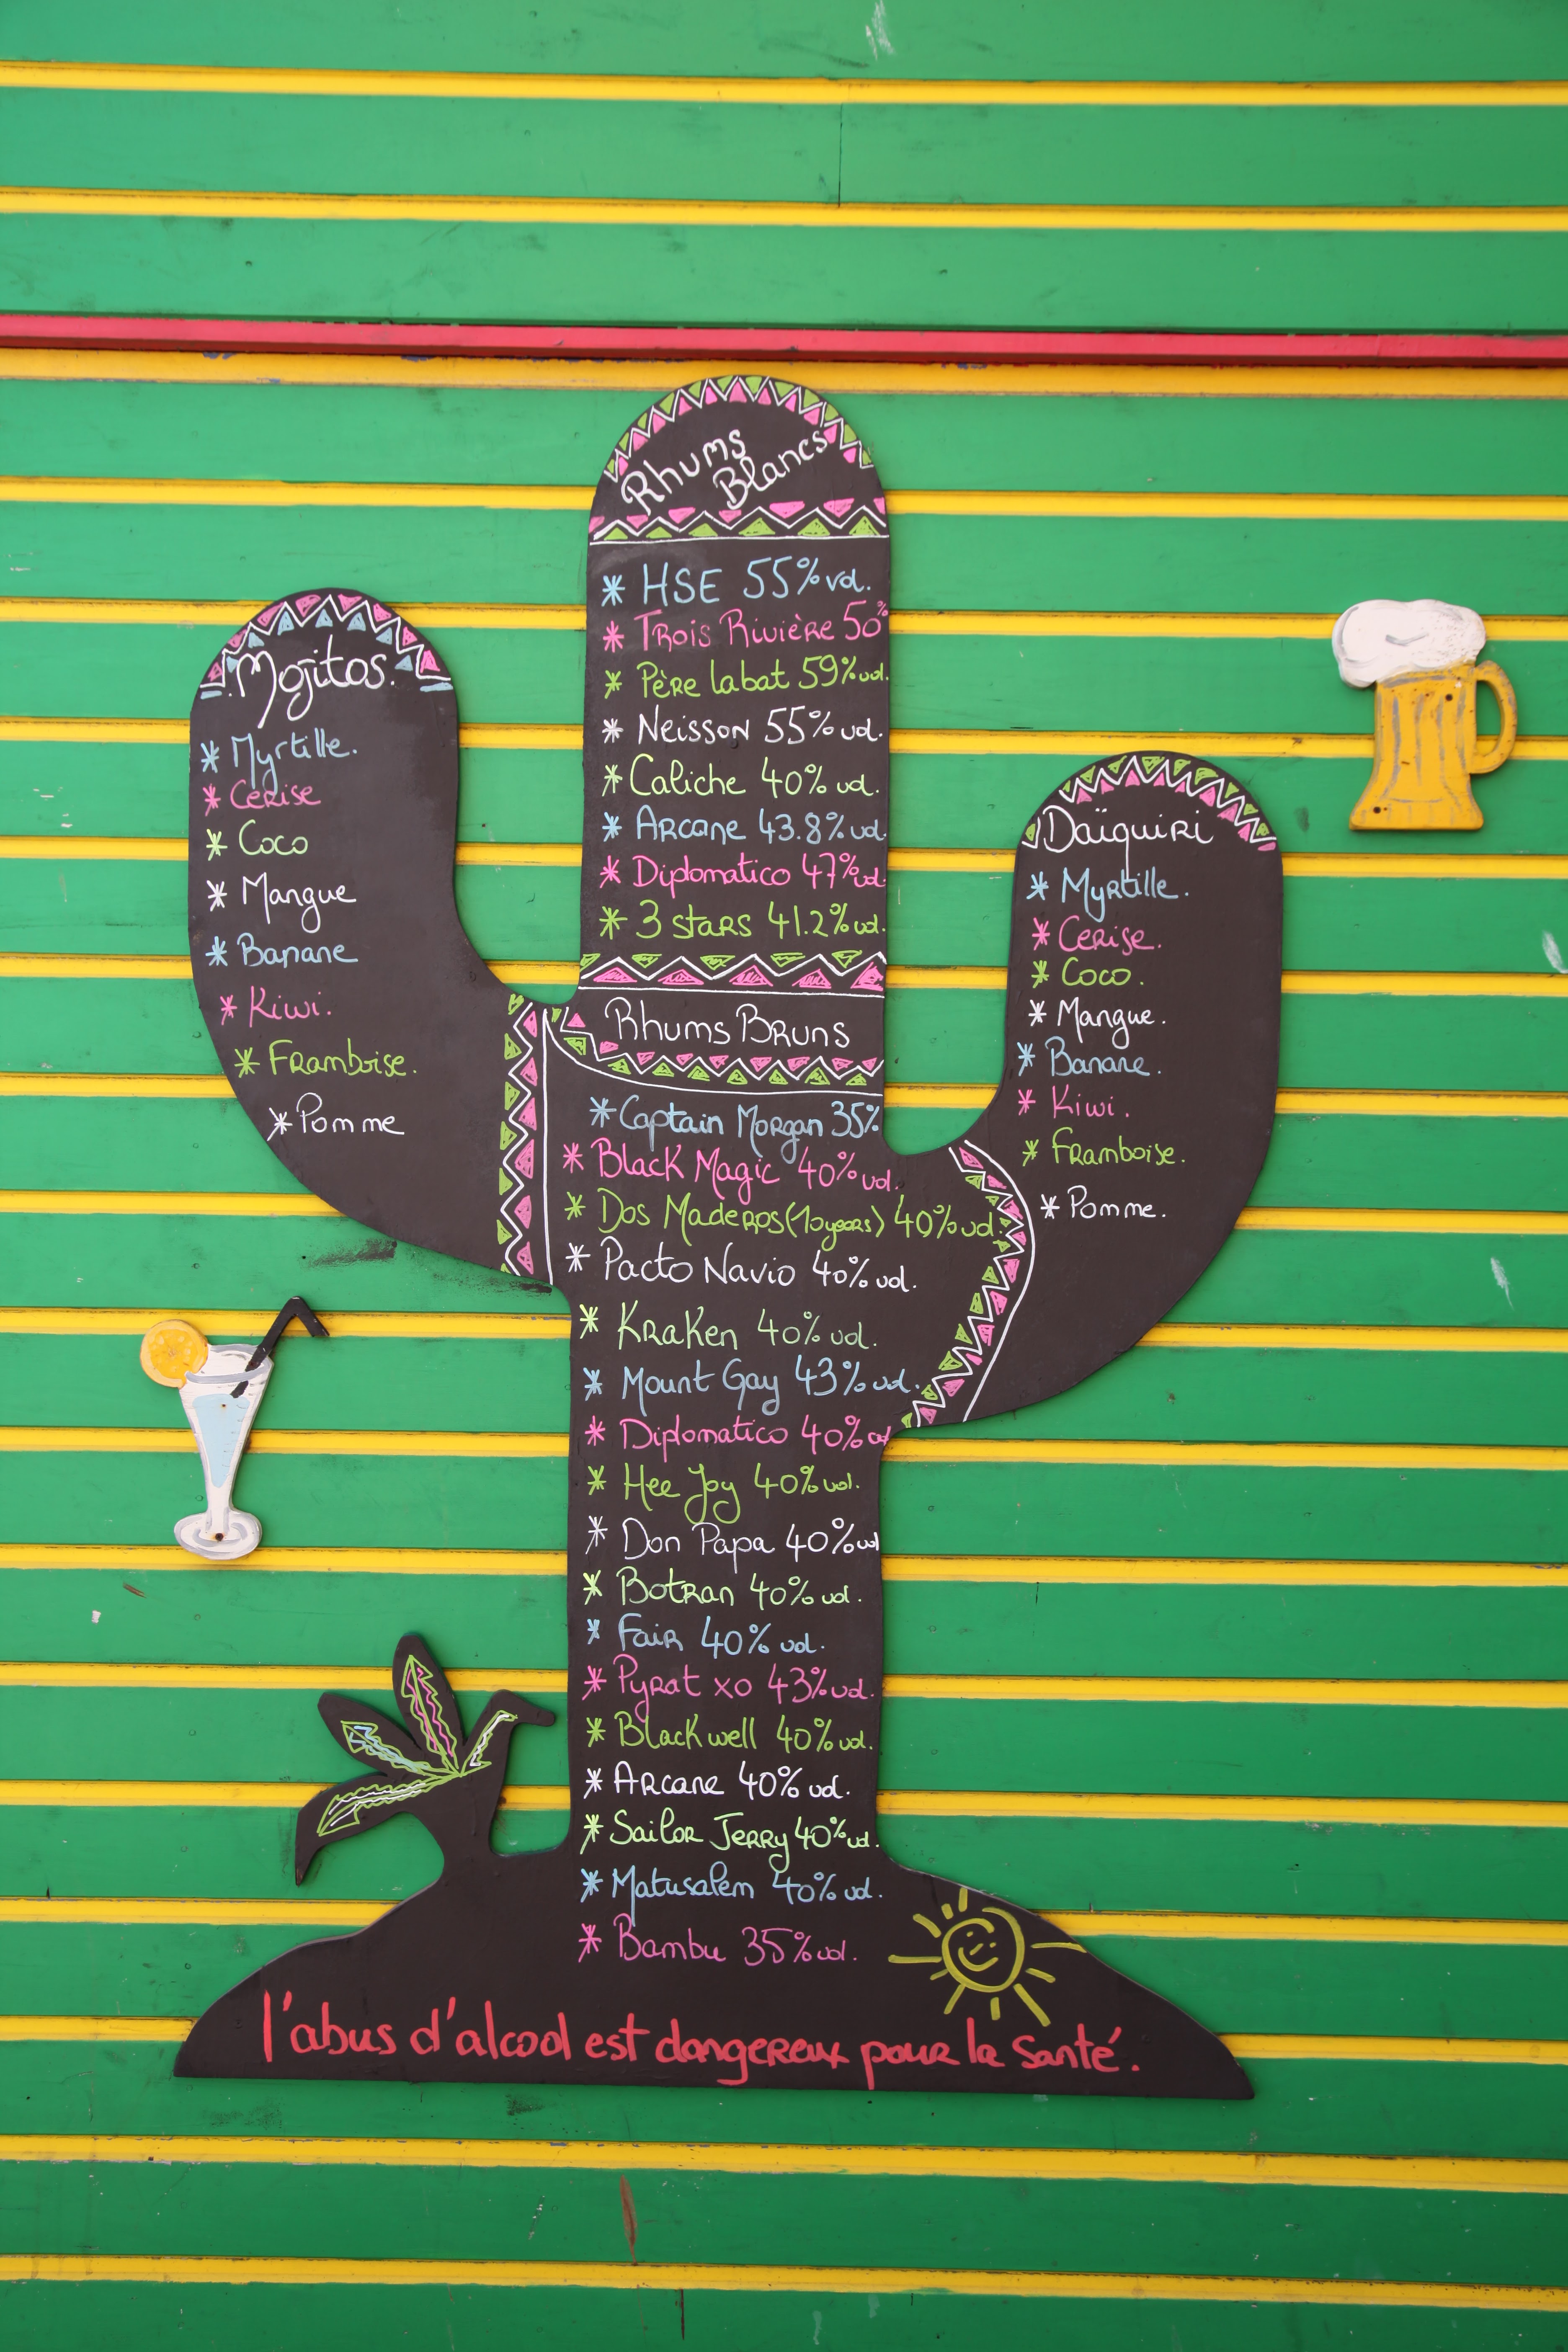 Mojitos.
* Myrtille.
* Cerise
* Coco
* Mangue
* Banane
* Kiwi.
* Framboise.
* Pomme
Rhums
Blancs
* HSE 55% vol.
* Trois Rivière 50%
* Père labat 59% vol.
* Neisson 55% vol.
* Caliche 40% vol.
* Arcane 43.8% vol
* Diplomatico 47% vol
* 3 stars 41.2% vol.
Rhums Bruns
* Captain Morgan 35%
* Black Magic 40% vol.
* Dos Maderos (10 years) 40% vol.
* Pacto Navio 40% vol.
* Kraken 40% vol.
* Mount Gay 43% vol.
* Diplomatico 40% vol
* Hee Joy 40% vol.
* Don Papa 40% vol
* Botran 40% vol.
* Fair 40% vol.
* Pyrat xo 43% vol.
* Blackwell 40% vol.
* Arcane 40% vol.
* Sailor Jerry 40% vol.
* Matusalem 40% vol.
* Bambu 35% vol.
Daïquiri
* Myrtille.
* Cerise.
* Coco.
* Mangue.
* Banane.
* Kiwi.
* Framboise.
* Pomme.
l'abus d'alcool est dangereux pour la santé.